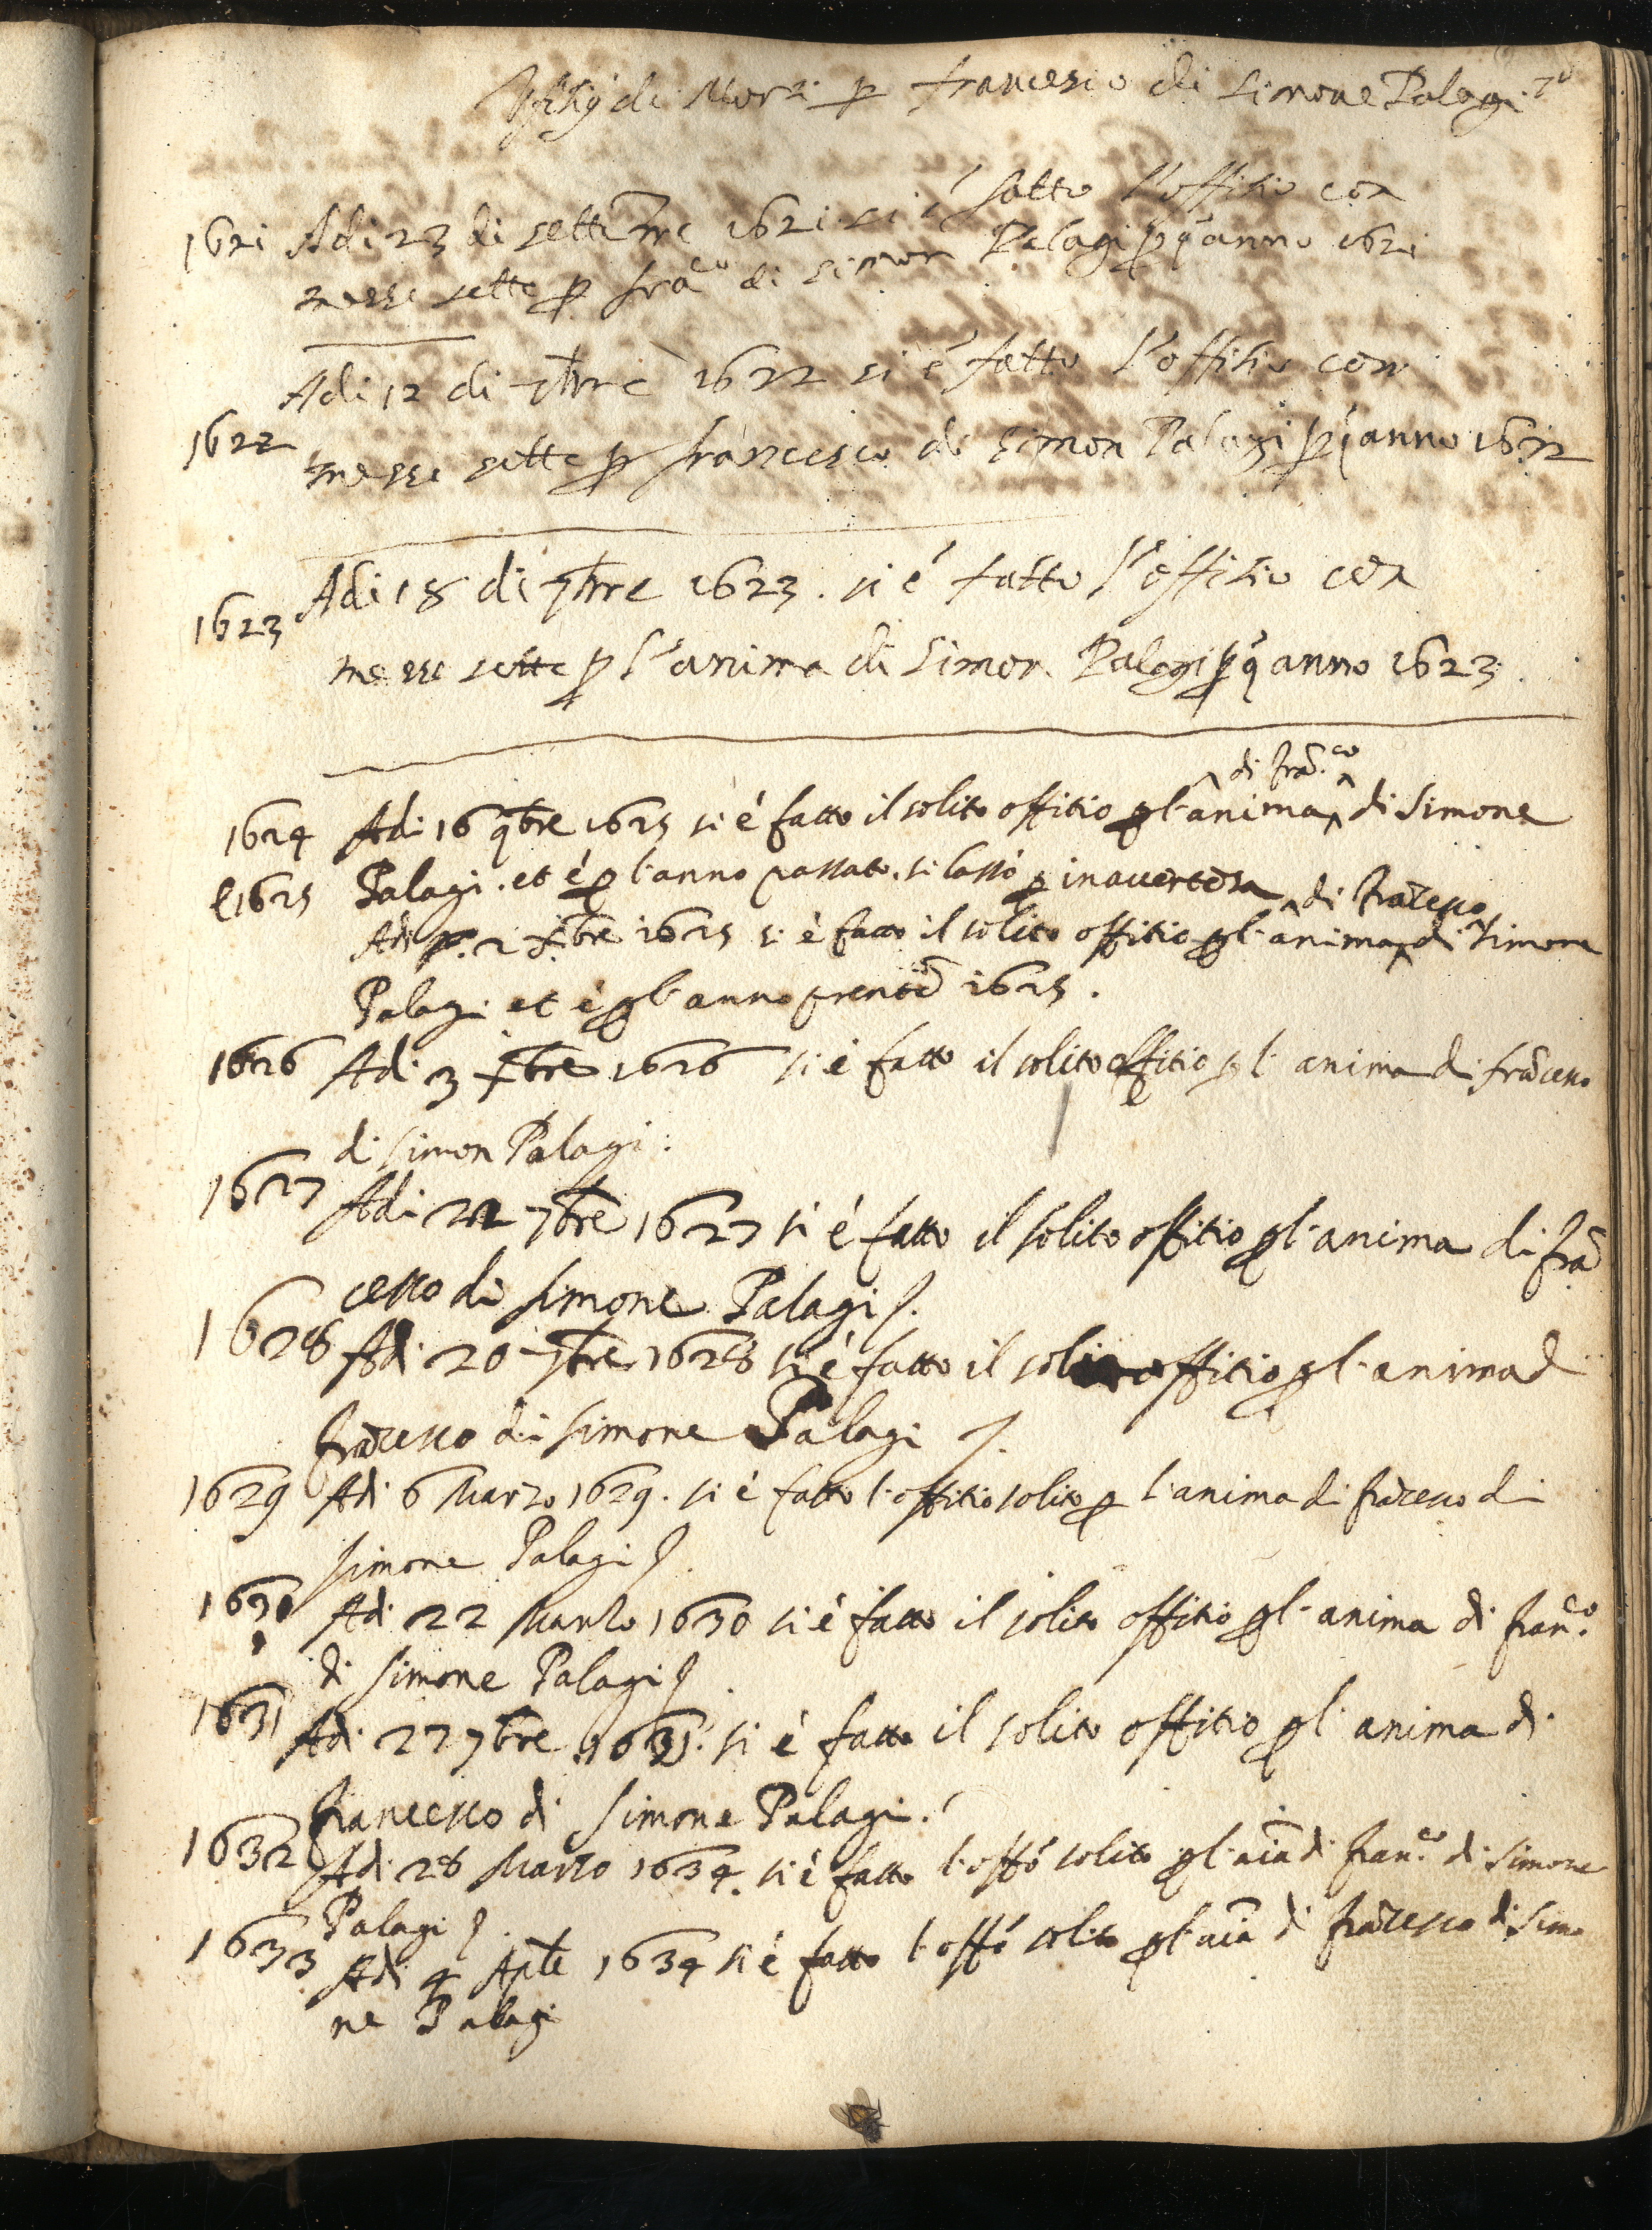 di Mor.ti p francesco di simone Palagi 70
1621 Adi 23 di settembre 1621 si é fatto l'offitio con
messe sette p fra.co di simon Palagi p qº anno 1621
Adi 12 di 7bre 1622 si é fatto l'offitio con
1622 messe sette p francesco di simon Palagi p qº anno 1622
Adi 18 di 7bre 1623. si é fatto l'offitio con
1623
messe sette p l'anima di Simon Palagi p qº anno 1623.
di fra.co
1624 Adi 16 9bre 1625 si é fatto il solito offitio p l'anima di Simone
e 1625 Palagi. et é p l'anno passato. si lassò p inavertenza
di Frācesco
Adi 2 Xbre 1625 si é fatto il solito offitio p l'anima di Simone
Palagi et é p l'anno prente 1625.
1626 Adi 3 Xbre 1626 si é fatto il solito offitio p l'anima di frācesco
di Simon Palagi:
1627 Adi 22 7bre 1627 si é fatto il solito offitio p l'anima di frā
cesco di Simone Palagi.
1628 Adi 20 7bre 1628 si é fatto il solito offitio p l'anima d
frācesco di Simone Palagi
1629 Adi 6 Marzo 1629. si é fatto l'offitio solito p l'anima di frācesco di
Simone Palagi
1630 Adi 22 Marzo 1630 si é fatto il solito offitio p l'anima di fran.co
di Simone Palagi
1631 Adi 27 7bre 1631. si é fatto il solito offitio p l'anima di
francesco di Simone Palagi.
1632 Adi 28 Marzo 1634. si é fatto l'offº solito p l'aīa di fran.co di Simone
Palagi
1633 Adi 4 Aple 1634 si é fatto l'offº solito p l'aīa di frācesco di Simo
ne Palagi